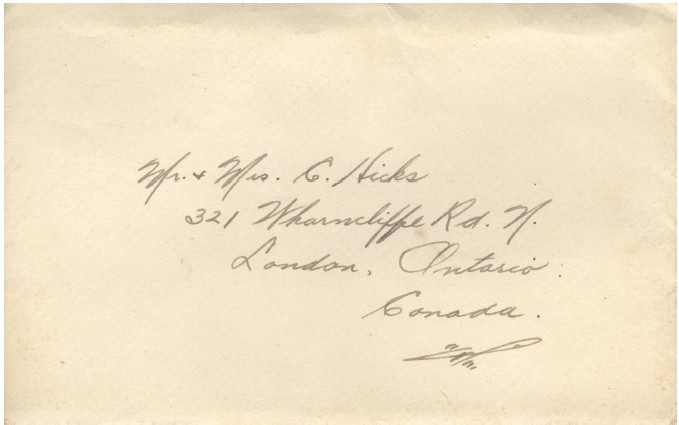 Mr. + Mrs. C. Hicks
321 Wharncliffe Rd. N.
London, Ontario.
Canada.